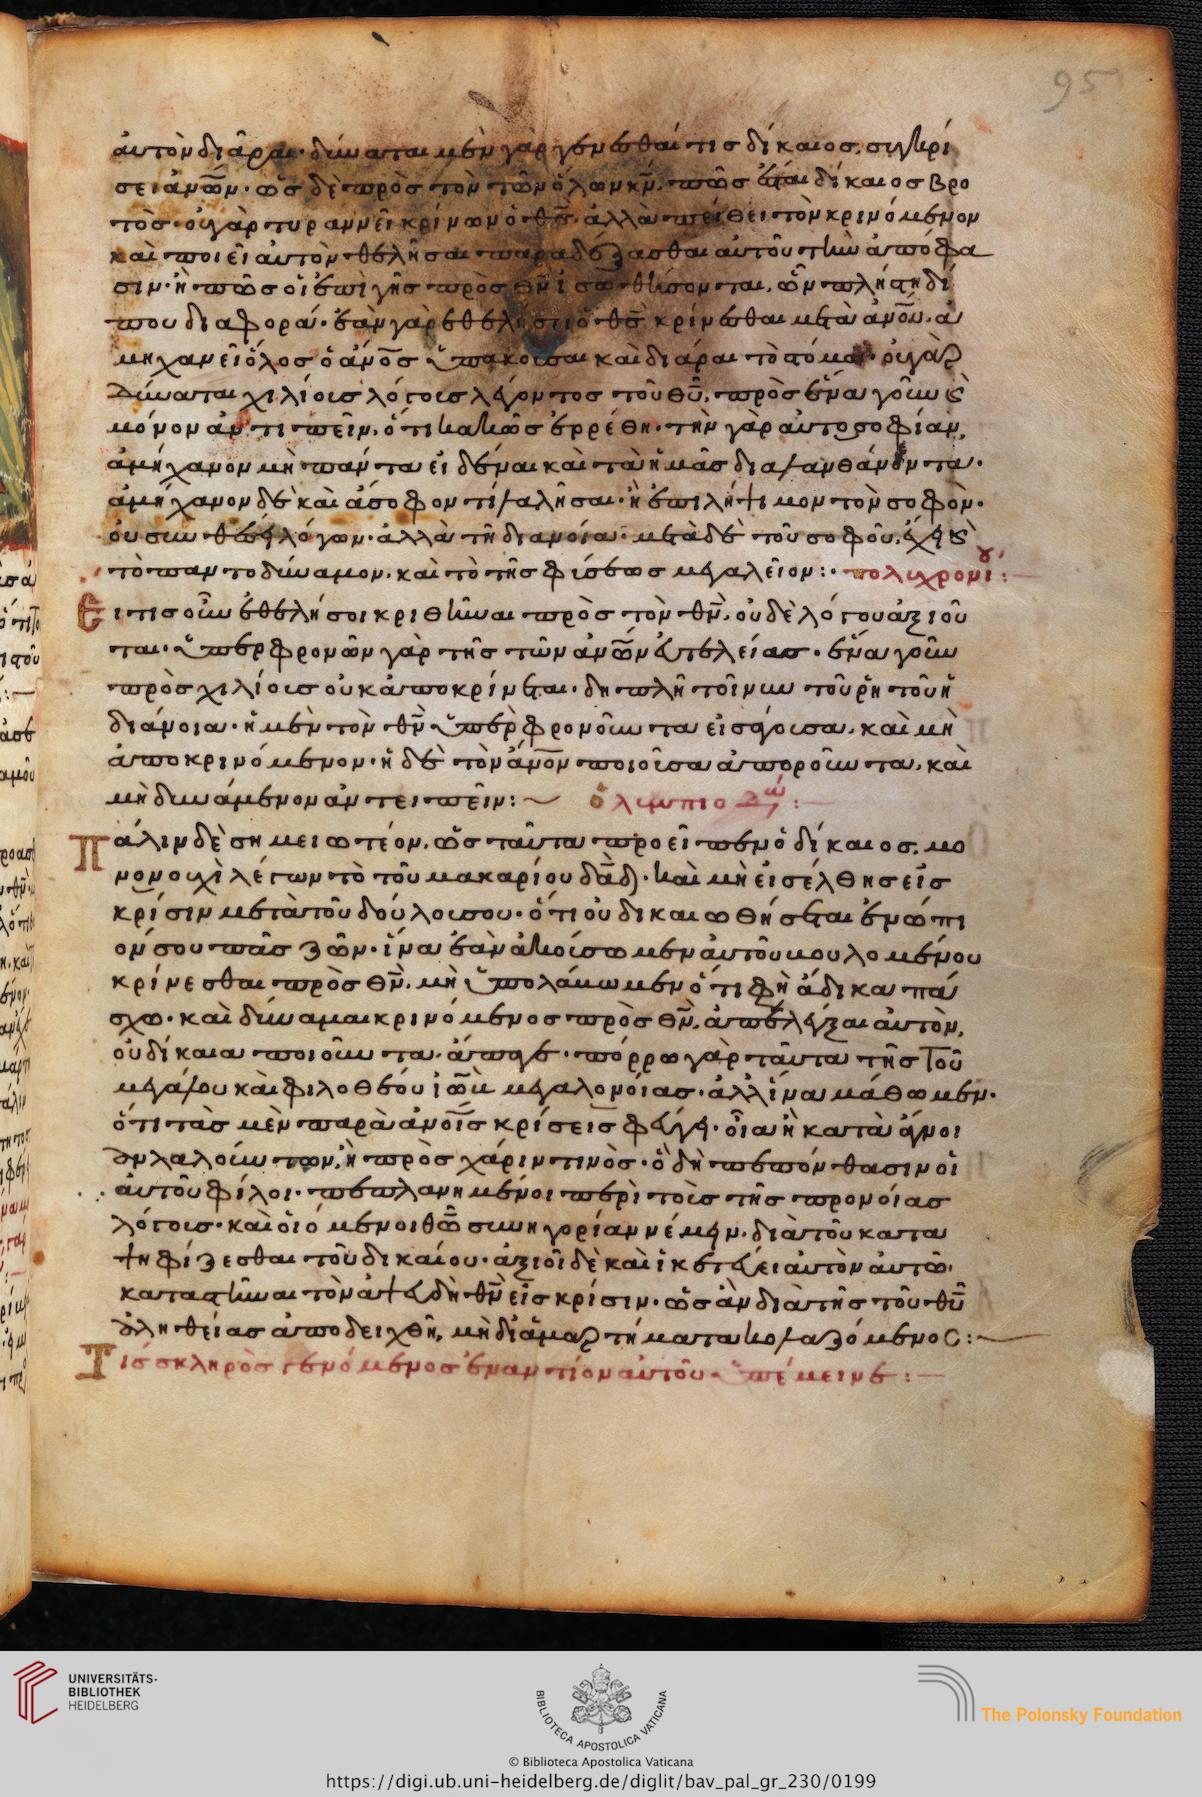 95
αὐτὸν διᾶραι· δύναται μὲν γὰρ γενέσθαι τις δίκαιος, συγκρί
σει ἀνῶν· ὡς δὲ πρὸς τὸν τῶν ὅλων κν, πῶς ἔσται δίκαιος βρο
τὸς· οὐ γὰρ τυραννεῖ κρίνων ὁ θς· ἀλλὰ πείθει τὸν κρινόμενον
καὶ ποιεῖ αὐτὸν θελῆσαι παραδέξασθαι αὐτοῦ τὴν ἀπόφα
σιν· ἢ πῶς οἱ ἐπὶ γῆς πρὸς θν ἰσωθήσονται, ὧν πλήστη δή
που διαφορά· ἐὰν γὰρ ἐθελήσει ὁ θς κρίνεσθαι μετὰ ἀνου· ἀ
μηχανεῖ ὅλος ὁ ἀνος ὑπακοῦσαι καὶ διάραι τὸ στόμα· οὐ γὰρ
δύναται χιλίοις λόγοις λέγοντος τοῦ θυ, πρὸς ἕνα γοῦν καὶ
μόνον ἀντιπεῖν, ὅτι κακῶς ἐρρέθη· τὴν γὰρ αὐτοσοφίαν,
ἀμήχανον μὴ πάντα εἰδέναι καὶ τὰ ἡμᾶς διαλανθάνοντα·
ἀμήχανον δὲ καὶ ἄσοφόν τι λαλῆσαι· ἢ ἐπιλήψιμον τὸν σοφὸν·
οὐ συνθέσει λόγων· ἀλλὰ τῆ διανοία· μετὰ δὲ τοῦ σοφοῦ, ἔχει καὶ
τὸ παντοδύναμον, καὶ τὸ τῆς φύσεως μεγαλεῖον:· πολυχρονίου:
Εἴ τις οὖν ἐθελήσοι κριθῆναι πρὸς τὸν θν, οὐδὲ λόγου ἀξιοῦ
ται· ὑπερφρονῶν γὰρ τῆς τῶν ἀνῶν εὐτελείας· ἕνα γοῦν
πρὸς χιλίοις οὐκ ἀποκρίνεται· διπλῆ τοίνυν τοῦ ῥητοῦ ἡ
διάνοια· ἢ μὲν τὸν θν ὑπερφρονοῦντα εἰσάγουσα, καὶ μὴ
ἀποκρινόμενον· ἢ δὲ τὸν ἀνον ποιοῦσα ἀποροῦντα, καὶ
μὴ δυνάμενον ἀντειπεῖν: ὀλυμπιοδώ:
Πάλιν δὲ σημειωτέον, ὡς ταῦτα προεῖπεν ὁ δίκαιος, μο
νονουχὶ λέγων τὸ τοῦ μακαρίου δαδ· καὶ μὴ εἰσέλθης εἰς
κρίσιν μετὰ τοῦ δούλου σου· ὅτι οὐ δικαιωθήσεται ἐνώπι
όν σου πᾶς ζῶν· ἵνα ἐὰν ἀκούσωμεν αὐτοῦ βουλομένου
κρίνεσθαι πρὸς θν, μὴ ὑπολάβωμεν ὅτι φη ἄδικα πά
σχω· καὶ δύναμαι κρινόμενος πρὸς θν, ἀπελέγξαι αὐτὸν,
οὐ δίκαια ποιοῦντα· ἄπαγε· πόρρω γὰρ ταῦτα τῆς τοῦ
μεγάλου καὶ φιλοθέου ἰὼβ μεγαλονοίας· ἀλλ' ἵνα μάθωμεν·
ὅτι τὰς μὲν παρὰ ἀνοις κρίσεις φεύγει· οἷα ἢ κατὰ ἄγνοι
αν λαλούντων, ἢ πρὸς χάριν τινὸς· ὃ δὴ πεπόνθασιν οἱ
αὐτοῦ φίλοι· πεπλανημένοι περὶ τοὺς τῆς προνοίας
λόγους· καὶ οἰόμενοι θω συνηγορίαν νέμειν, διὰ τοῦ κατα
ψηφίζεσθαι τοῦ δικαίου· ἀξιοῖ δὲ καὶ ἱκετεύει αὐτὸν αὐτῶ·
καταστῆναι τὸν ἀψευδῆ θν εἰς κρίσιν· ὡς ἂν διὰ τῆς τοῦ θυ
ἀληθείας ἀποδειχθῆ, μὴ δι' ἁμαρτήματα κολαζόμενος:
Τίς σκληρὸς γενόμενος ἐναντίον αὐτοῦ· ὑπέμεινε:
UNIVERSITÄTS-
BIBLIOTHEK
HEIDELBERG
BIBLIOTECA APOSTOLICA VATICANA
The Polonsky Foundation
© Biblioteca Apostolica Vaticana
https://digi.ub.uni-heidelberg.de/diglit/bav_pal_gr_230/0199